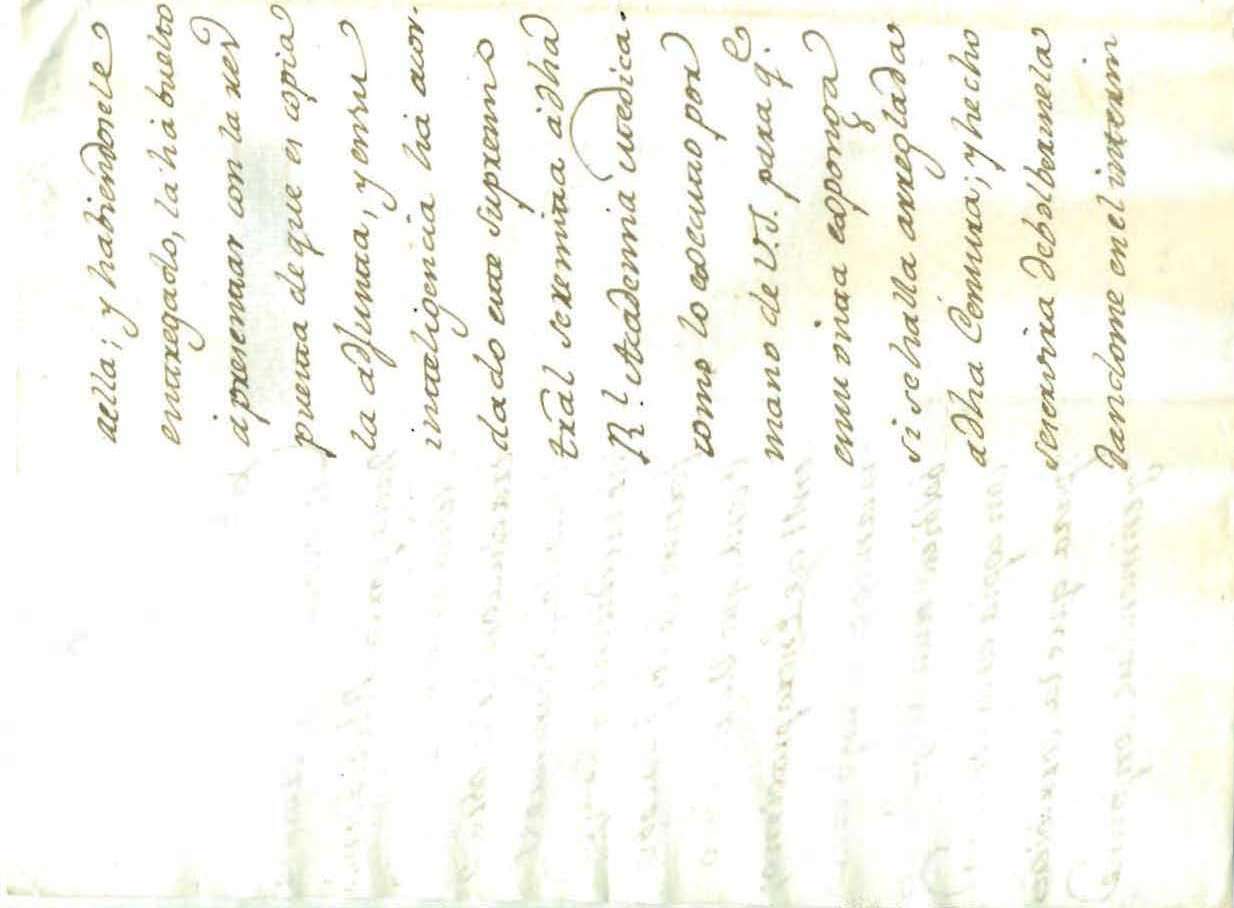 aella; y habiendosele
entregado, la há buelto
á presentar con la res
puesta deque es copia
la adjunta, y ensu
inteligencia há acor-
dado este Supremo
tral seremita á dha
Rl. Academia Medica.
como lo executo por
mano de V.S. para q.e
ensu vista exponga
si sehalla arreglada
adha Censura; y hecho
seservira debolbermela
dandome enel interim